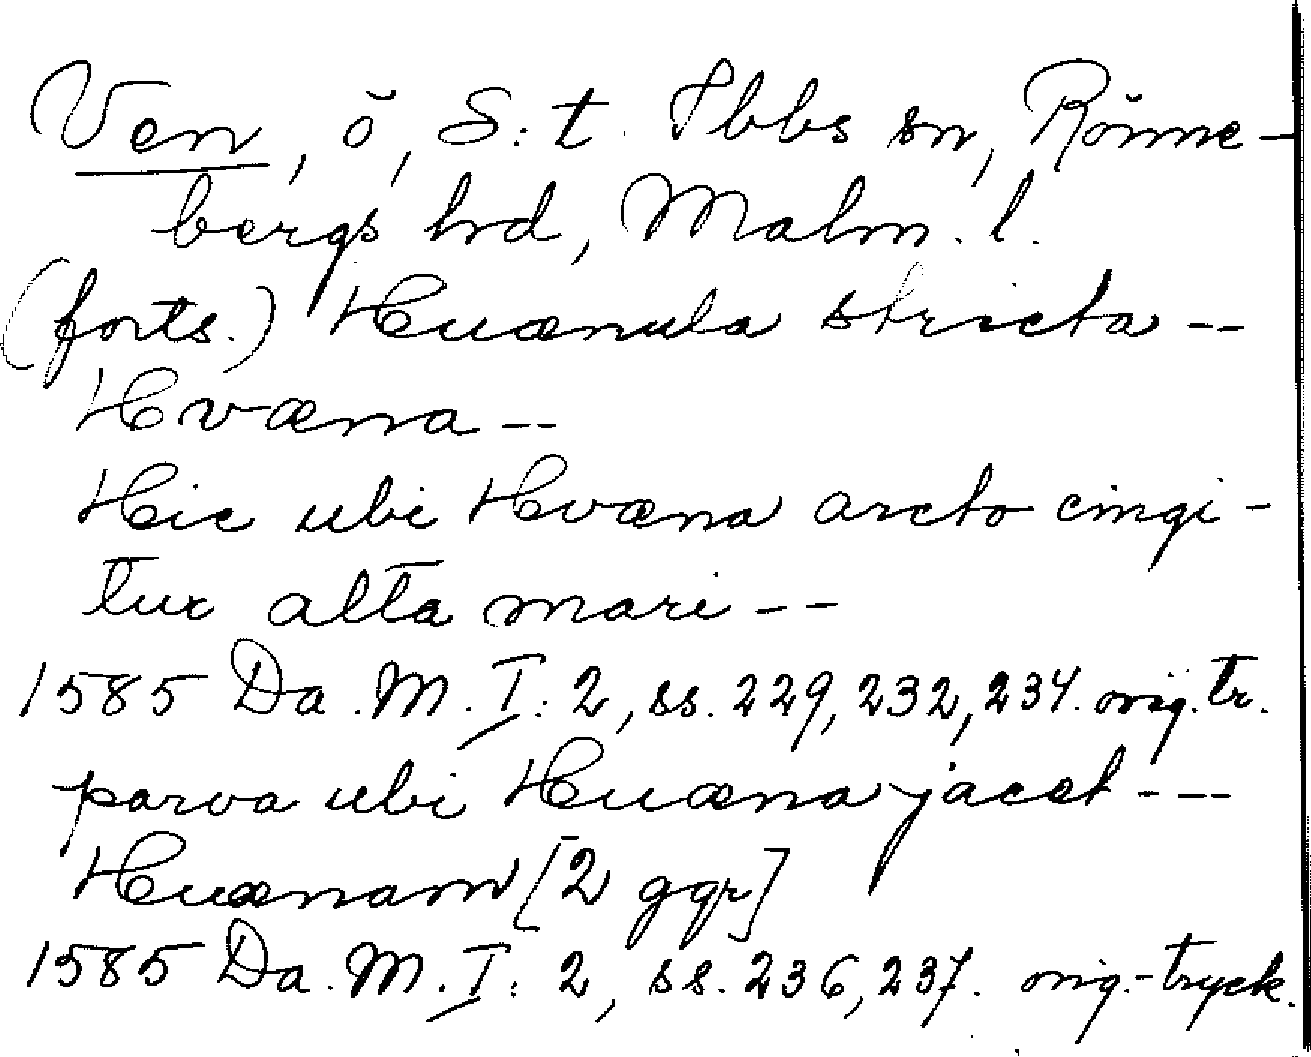 Ven, ö, S:t Ibbs sn, Rönne-
bergs hrd, Malm. l.
(forts.) Huænula stricta --
Hvæna --
Hic ubi Hvæna arcto cingi-
tur alta mari --
1585 Da. M. I: 2, ss. 229, 232, 234. orig. tr.
parva ubi Huæna jacet ---
Huænam [2 ggr]
1585 Da. M. I: 2, ss. 236, 237. orig.-tryck.